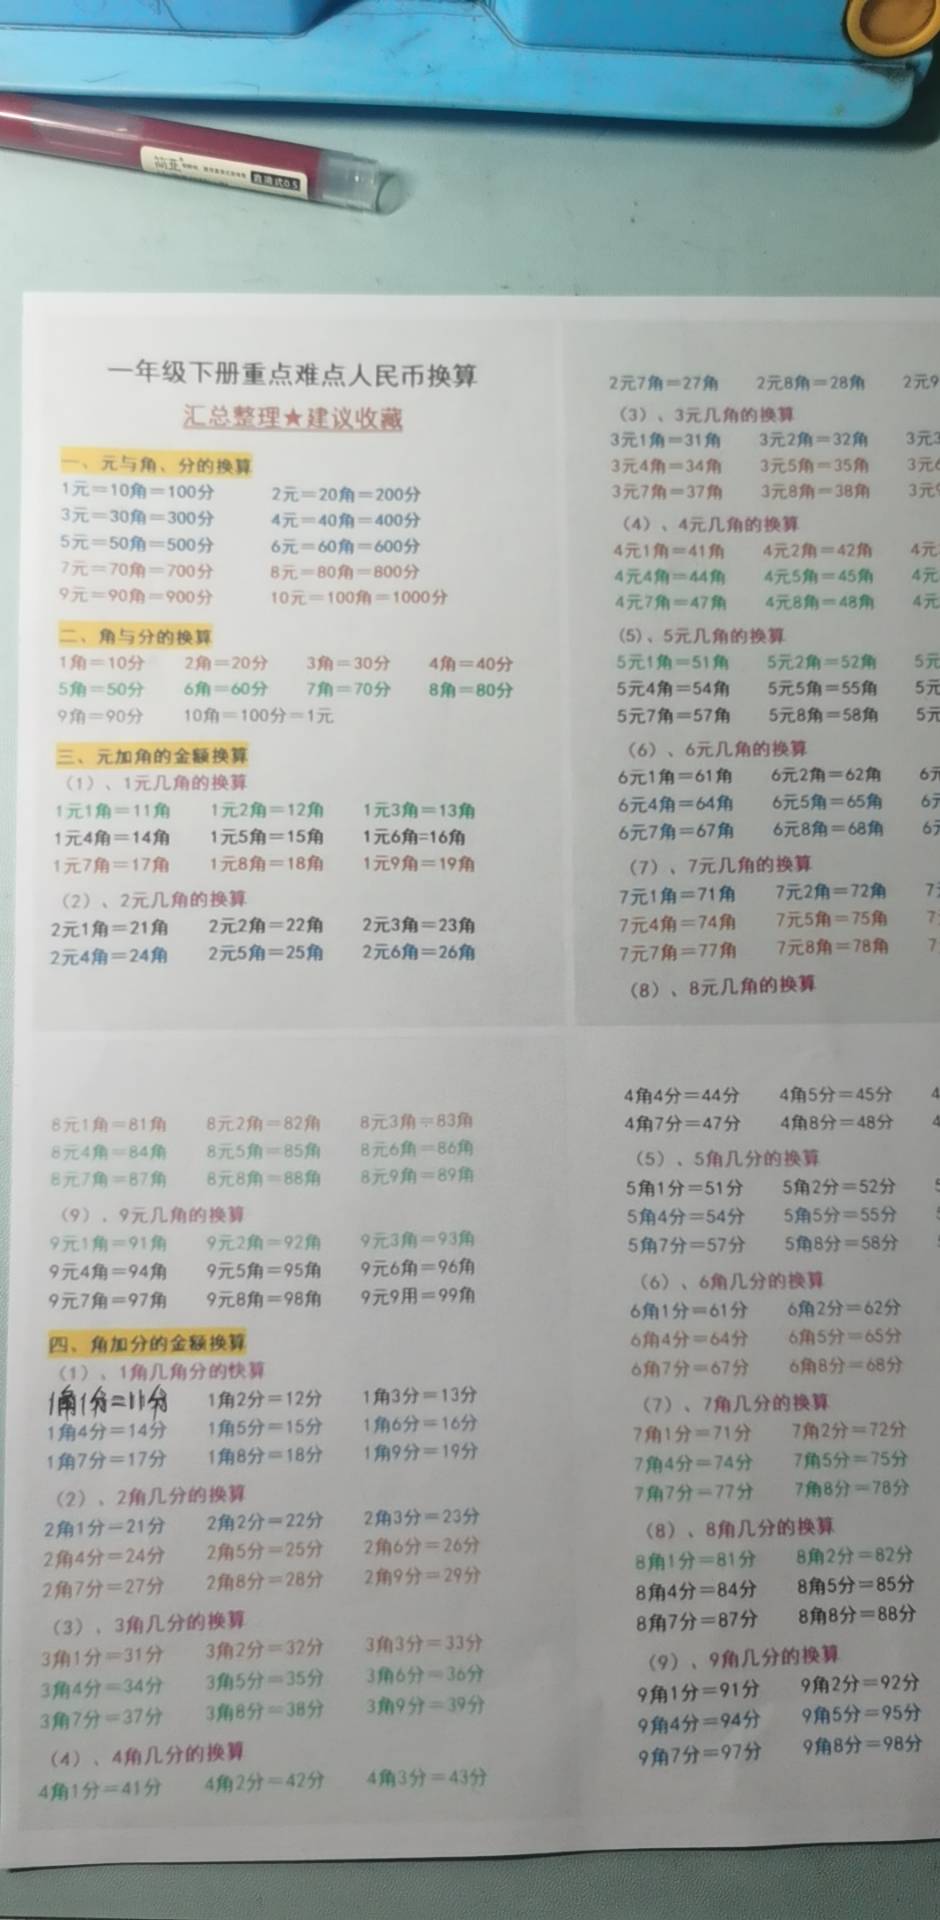 直液式0.5
一年级下册重点难点人民币换算
汇总整理★建议收藏
一、元与角、分的换算
1元=10角=100分 2元=20角=200分
3元=30角=300分 4元=40角=400分
5元=50角=500分 6元=60角=600分
7元=70角=700分 8元=80角=800分
9元=90角=900分 10元=100角=1000分
二、角与分的换算
1角=10分 2角=20分 3角=30分 4角=40分
5角=50分 6角=60分 7角=70分 8角=80分
9角=90分 10角=100分=1元
三、元加角的金额换算
(1)、1元几角的换算
1元1角=11角 1元2角=12角 1元3角=13角
1元4角=14角 1元5角=15角 1元6角=16角
1元7角=17角 1元8角=18角 1元9角=19角
(2)、2元几角的换算
2元1角=21角 2元2角=22角 2元3角=23角
2元4角=24角 2元5角=25角 2元6角=26角
2元7角=27角 2元8角=28角 2元9
(3)、3元几角的换算
3元1角=31角 3元2角=32角 3元3
3元4角=34角 3元5角=35角 3元6
3元7角=37角 3元8角=38角 3元9
(4)、4元几角的换算
4元1角=41角 4元2角=42角 4元
4元4角=44角 4元5角=45角 4元
4元7角=47角 4元8角=48角 4元
(5)、5元几角的换算
5元1角=51角 5元2角=52角 5元
5元4角=54角 5元5角=55角 5元
5元7角=57角 5元8角=58角 5元
(6)、6元几角的换算
6元1角=61角 6元2角=62角 6元
6元4角=64角 6元5角=65角 6
6元7角=67角 6元8角=68角 6
(7)、7元几角的换算
7元1角=71角 7元2角=72角 7
7元4角=74角 7元5角=75角 7
7元7角=77角 7元8角=78角 7
(8)、8元几角的换算
8元1角=81角 8元2角=82角 8元3角=83角
8元4角=84角 8元5角=85角 8元6角=86角
8元7角=87角 8元8角=88角 8元9角=89角
(9)、9元几角的换算
9元1角=91角 9元2角=92角 9元3角=93角
9元4角=94角 9元5角=95角 9元6角=96角
9元7角=97角 9元8角=98角 9元9用=99角
四、角加分的金额换算
(1)、1角几角分的快算
1角1分=11分 1角2分=12分 1角3分=13分
1角4分=14分 1角5分=15分 1角6分=16分
1角7分=17分 1角8分=18分 1角9分=19分
(2)、2角几分的换算
2角1分=21分 2角2分=22分 2角3分=23分
2角4分=24分 2角5分=25分 2角6分=26分
2角7分=27分 2角8分=28分 2角9分=29分
(3)、3角几分的换算
3角1分=31分 3角2分=32分 3角3分=33分
3角4分=34分 3角5分=35分 3角6分=36分
3角7分=37分 3角8分=38分 3角9分=39分
(4)、4角几分的换算
4角1分=41分 4角2分=42分 4角3分=43分
4角4分=44分 4角5分=45分 4
4角7分=47分 4角8分=48分 4
(5)、5角几分的换算
5角1分=51分 5角2分=52分
5角4分=54分 5角5分=55分
5角7分=57分 5角8分=58分
(6)、6角几分的换算
6角1分=61分 6角2分=62分
6角4分=64分 6角5分=65分
6角7分=67分 6角8分=68分
(7)、7角几分的换算
7角1分=71分 7角2分=72分
7角4分=74分 7角5分=75分
7角7分=77分 7角8分=78分
(8)、8角几分的换算
8角1分=81分 8角2分=82分
8角4分=84分 8角5分=85分
8角7分=87分 8角8分=88分
(9)、9角几分的换算
9角1分=91分 9角2分=92分
9角4分=94分 9角5分=95分
9角7分=97分 9角8分=98分